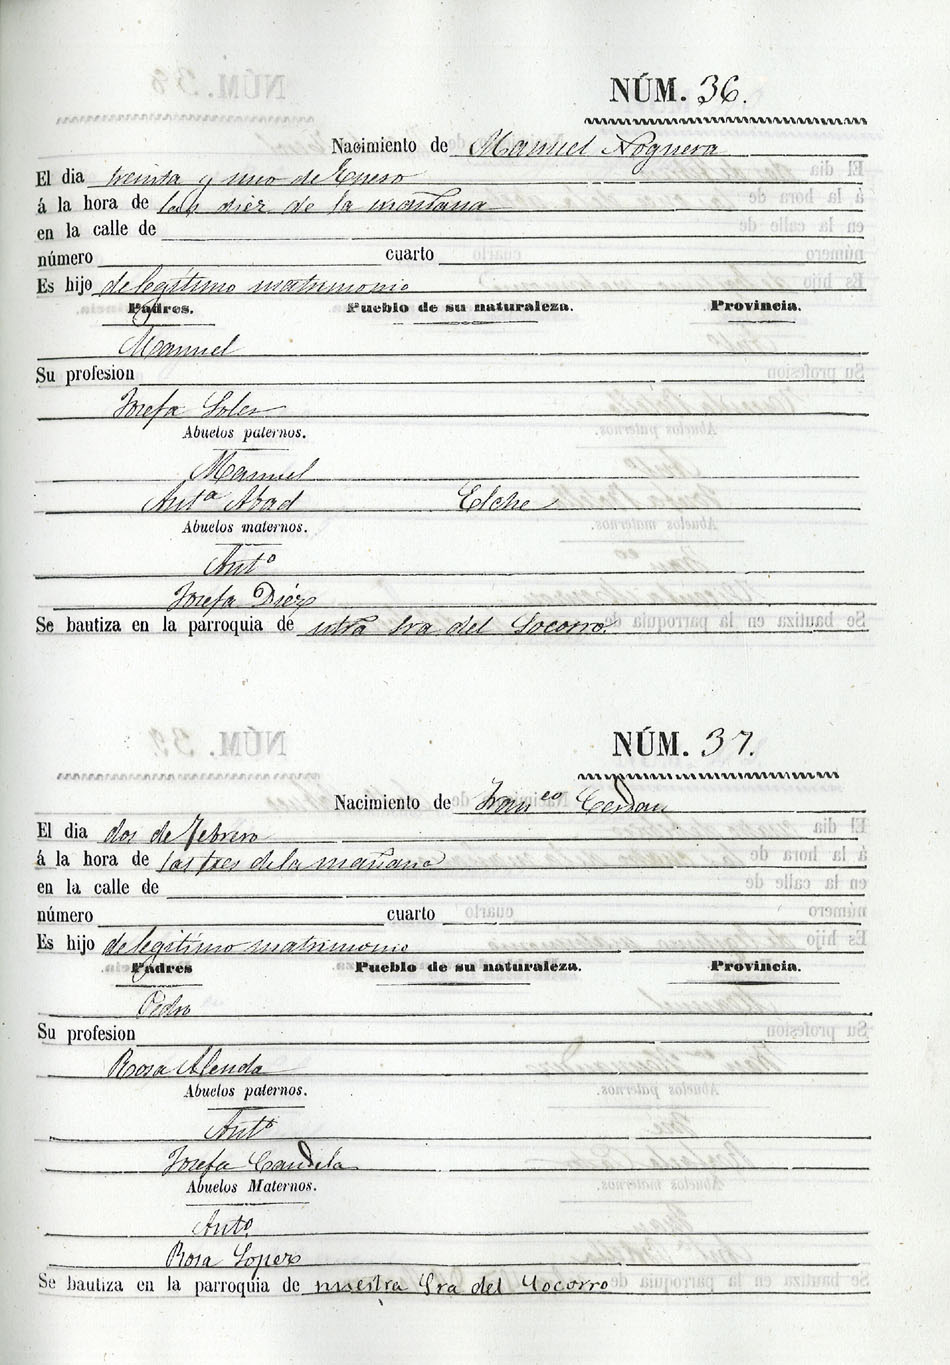 NÚM. 36.
Nacimiento de Manuel Noguera
El dia treinta y uno de Enero
á la hora de las diez de la mañana
en la calle de
número cuarto
Es hijo de legítimo matrimonio
Padres. Pueblo de su naturaleza. Provincia.
Manuel
Su profesion
Josefa Soler
Abuelos paternos.
Manuel
Antª Abad Elche
Abuelos maternos.
Antº
Josefa Diez
Se bautiza en la parroquia de ntra Sra del Socorro.
NÚM. 37.
Nacimiento de Franco Cerdan
El dia dos de Febrero
á la hora de las tres de la mañana
en la calle de
número cuarto
Es hijo de legitimo matrimonio
Padres Pueblo de su naturaleza. Provincia.
Pedro
Su profesion
Rosa Alenda
Abuelos paternos.
Antº
Josefa Candela
Abuelos Maternos.
Antº
Rosa Lopez
Se bautiza en la parroquia de nuestra Sra del Socorro